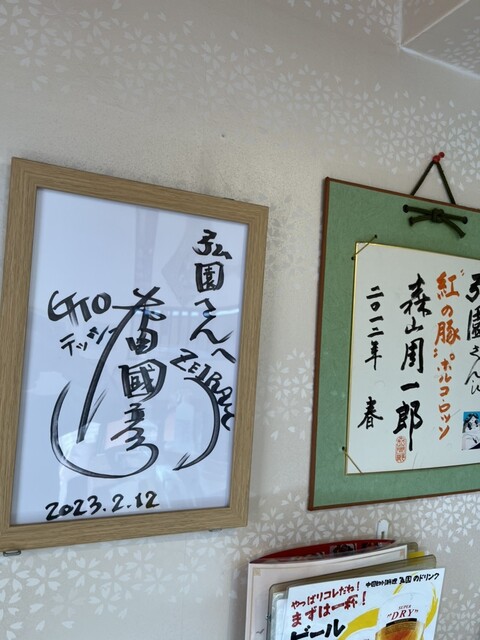 弘園さんへ
GTO
國彦
2023.2.12
弘園さんへ
"紅の豚"ポルコ・ロッソ
森山周一郎
二〇一二年 春
やっぱりコレだね!
まずは一杯!
ビール
中国料理 弘園 のドリンク
SUPER
"DRY"